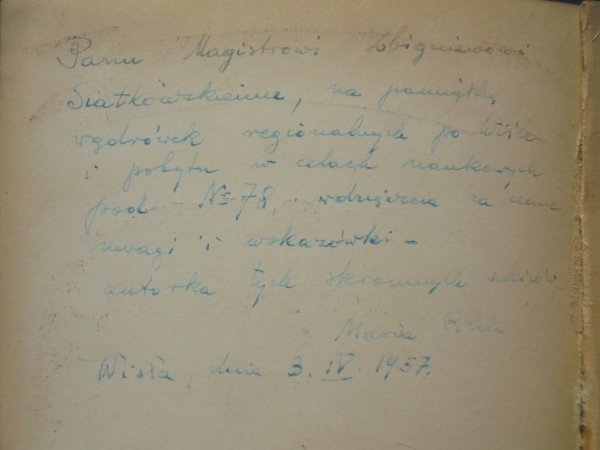 Panu Magistrowi Zbigniewowi
Siatkowskiemu, na pamiątkę
wędrówek regionalnych po Wiśle
i pobytu w celach naukowych
pod № 78, wdzięczna za cenne
uwagi i wskazówki -
autorka tych skromnych
Maria
Wisła, dnia 3. IV. 1957.